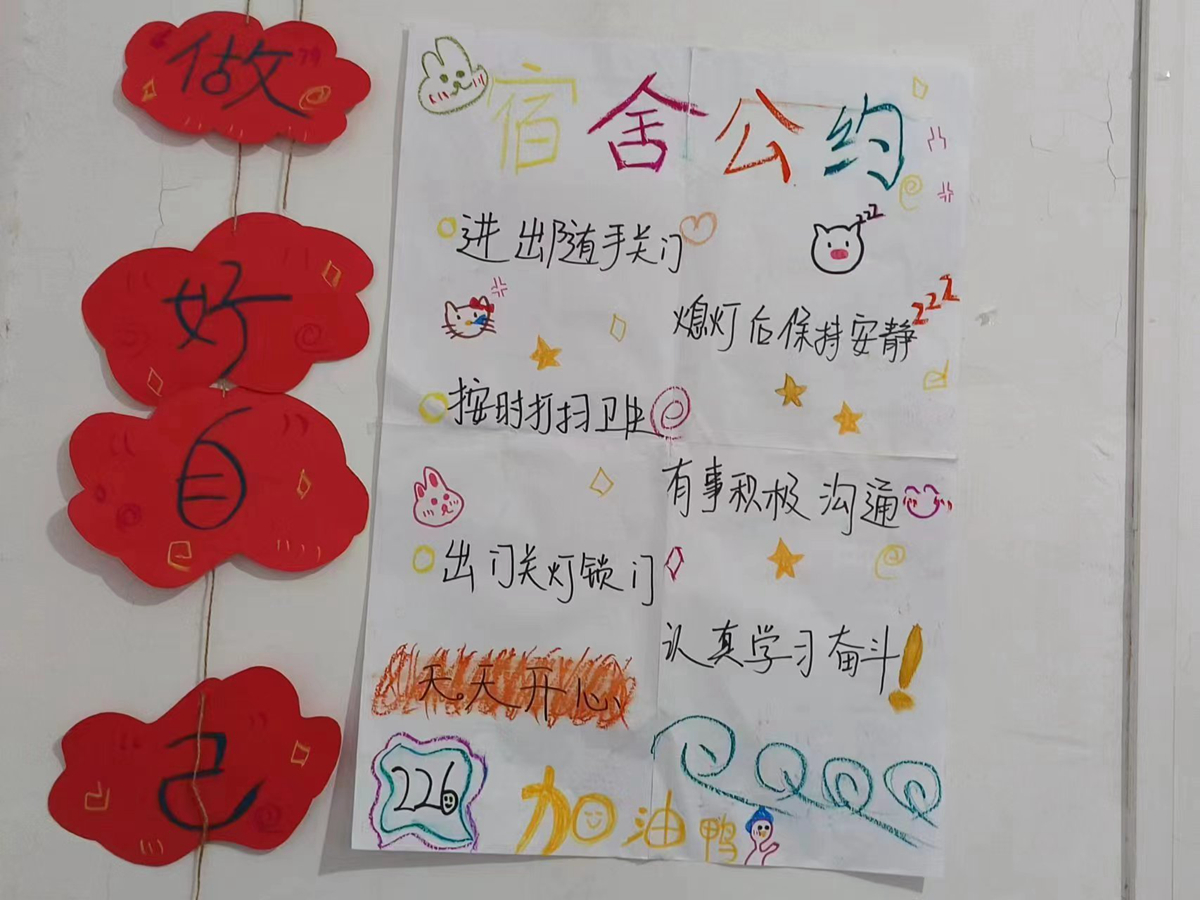 做
好
自
己
宿舍公约
进出随手关门
zzz
熄灯后保持安静zzz
按时打扫卫生
有事积极沟通
出门关灯锁门
认真学习奋斗!
天天开心
226
加油鸭